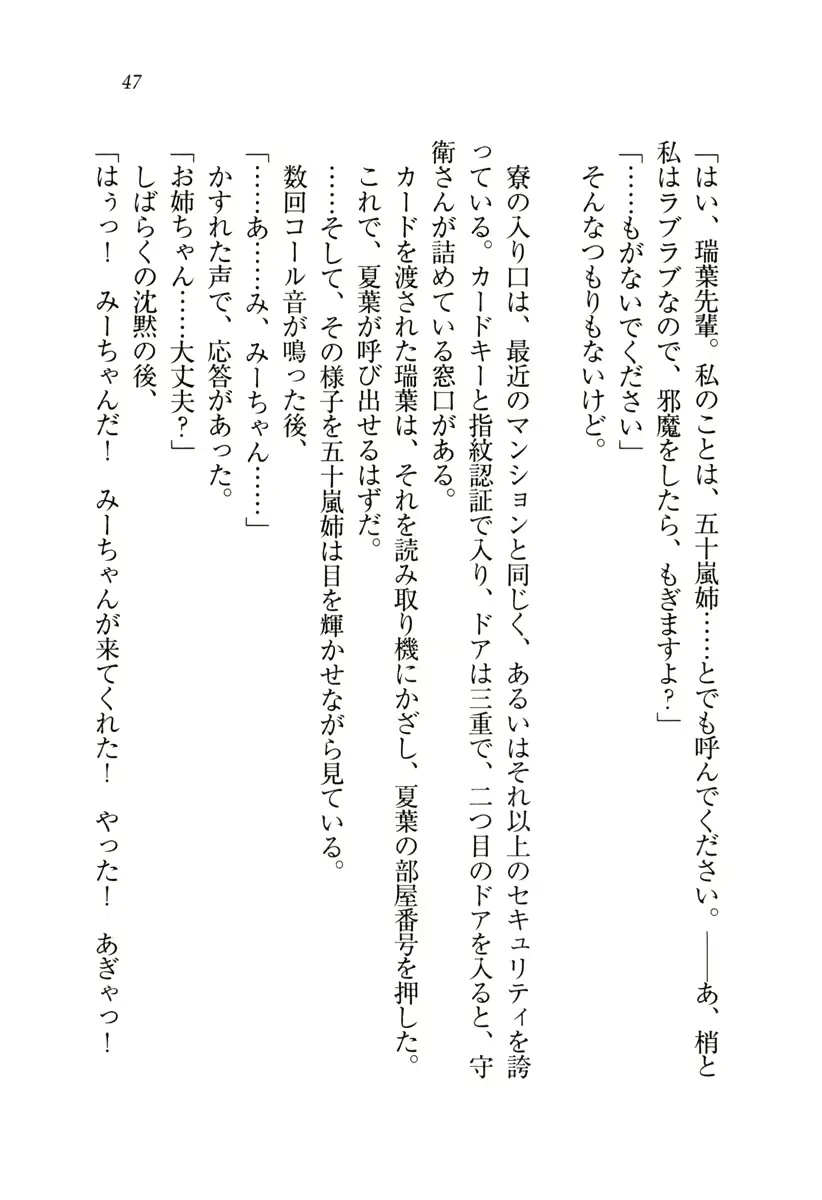 47
「はい、瑞葉先輩。私のことは、五十嵐姉……とでも呼んでください。――あ、梢と
私はラブラブなので、邪魔をしたら、もぎますよ？」
「……もがないでください」
そんなつもりもないけど。
寮の入り口は、最近のマンションと同じく、あるいはそれ以上のセキュリティを誇
っている。カードキーと指紋認証で入り、ドアは三重で、二つ目のドアを入ると、守
衛さんが詰めている窓口がある。
カードを渡された瑞葉は、それを読み取り機にかざし、夏葉の部屋番号を押した。
これで、夏葉が呼び出せるはずだ。
……そして、その様子を五十嵐姉は目を輝かせながら見ている。
数回コール音が鳴った後、
「……あ……み、みーちゃん……」
かすれた声で、応答があった。
「お姉ちゃん……大丈夫？」
しばらくの沈黙の後、
「はぅっ！　みーちゃんだ！　みーちゃんが来てくれた！　やった！　あぎゃっ！